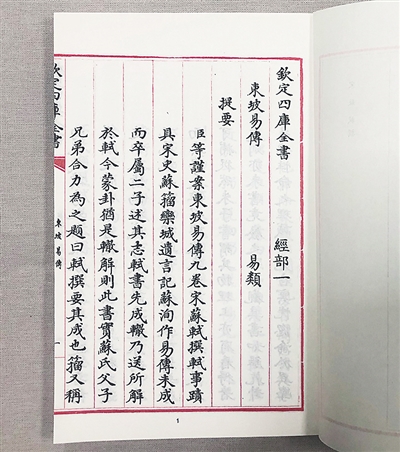 欽定四庫全書 經部一
東坡易傳 易類
提要
臣等謹案東坡易傳九卷宋蘇軾撰軾事蹟
具宋史蘇籀欒城遺言記蘇洵作易傳未成
而卒屬二子述其志軾書先成轍乃送所解
於軾今蒙卦猶是轍解則此書實蘇氏父子
兄弟合力為之題曰軾撰要其成也籀又稱
欽定四庫全書
東坡易傳
一
1